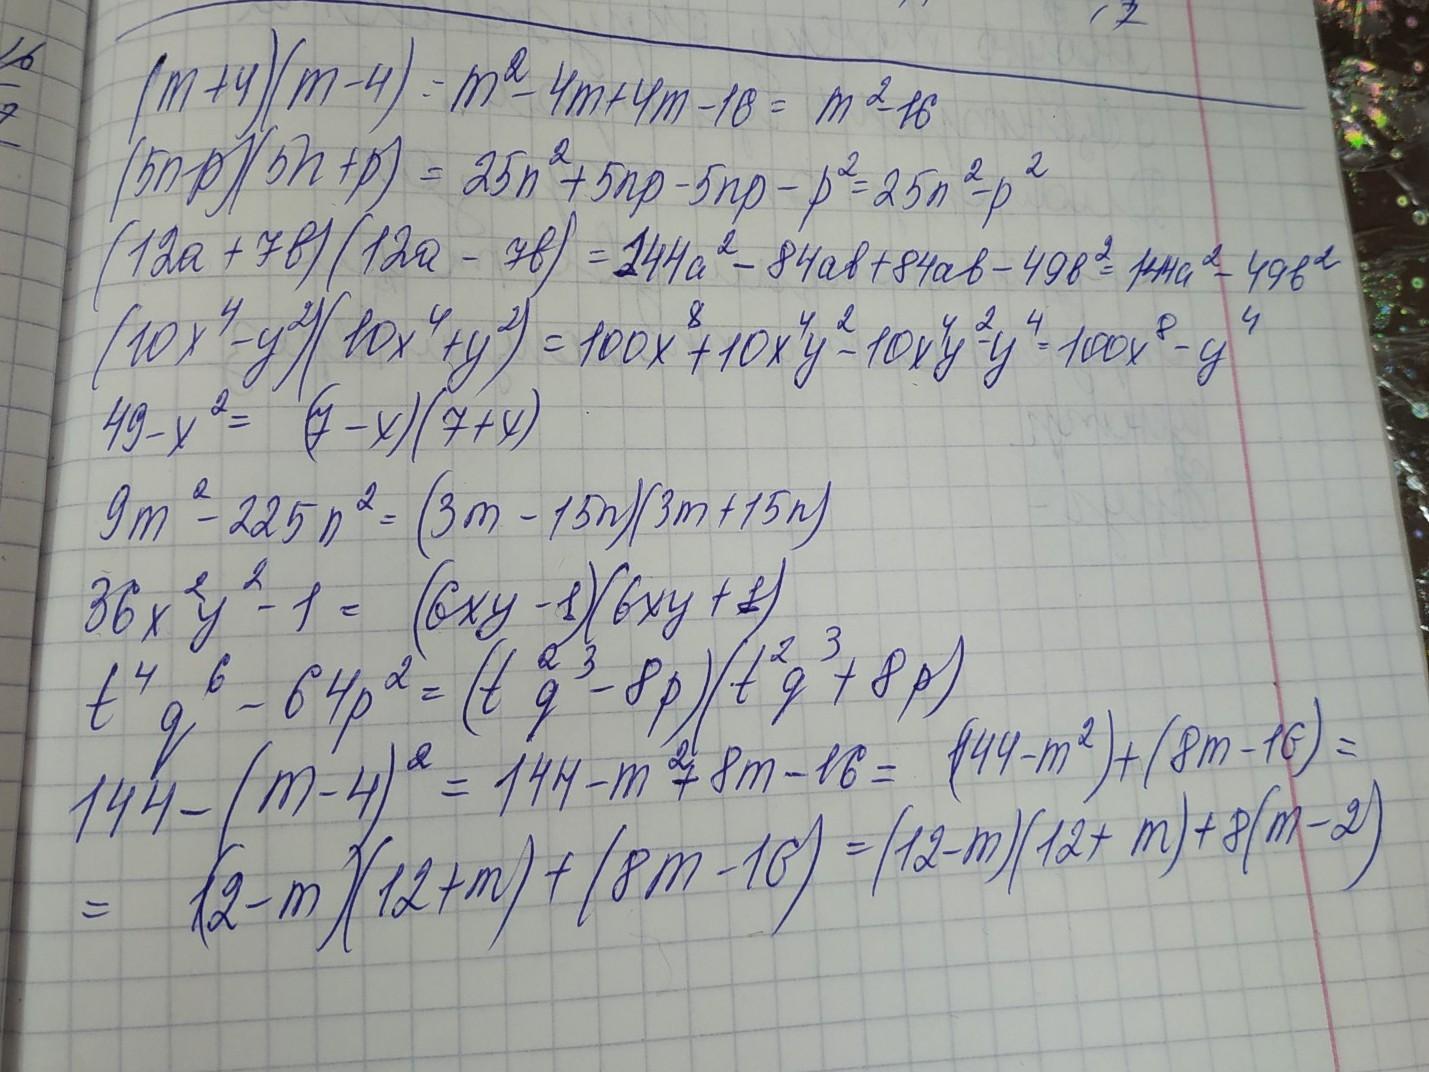 16
7
(m+4)(m-4) = m² - 4m + 4m - 16 = m² - 16
(5n-p)(5n+p) = 25n² + 5np - 5np - p² = 25n² - p²
(12a + 7b)(12a - 7b) = 144a² - 84ab + 84ab - 49b² = 144a² - 49b²
(10x⁴ - y²)(10x⁴ + y²) = 100x⁸ + 10x⁴y² - 10x⁴y² - y⁴ = 100x⁸ - y⁴
49 - x² = (7 - x)(7 + x)
9m² - 225n² = (3m - 15n)(3m + 15n)
36x²y² - 1 = (6xy - 1)(6xy + 1)
t⁴q⁶ - 64p² = (t²q³ - 8p)(t²q³ + 8p)
144 - (m - 4)² = 144 - m² + 8m - 16 = (144 - m²) + (8m - 16) =
= (12 - m)(12 + m) + (8m - 16) = (12 - m)(12 + m) + 8(m - 2)